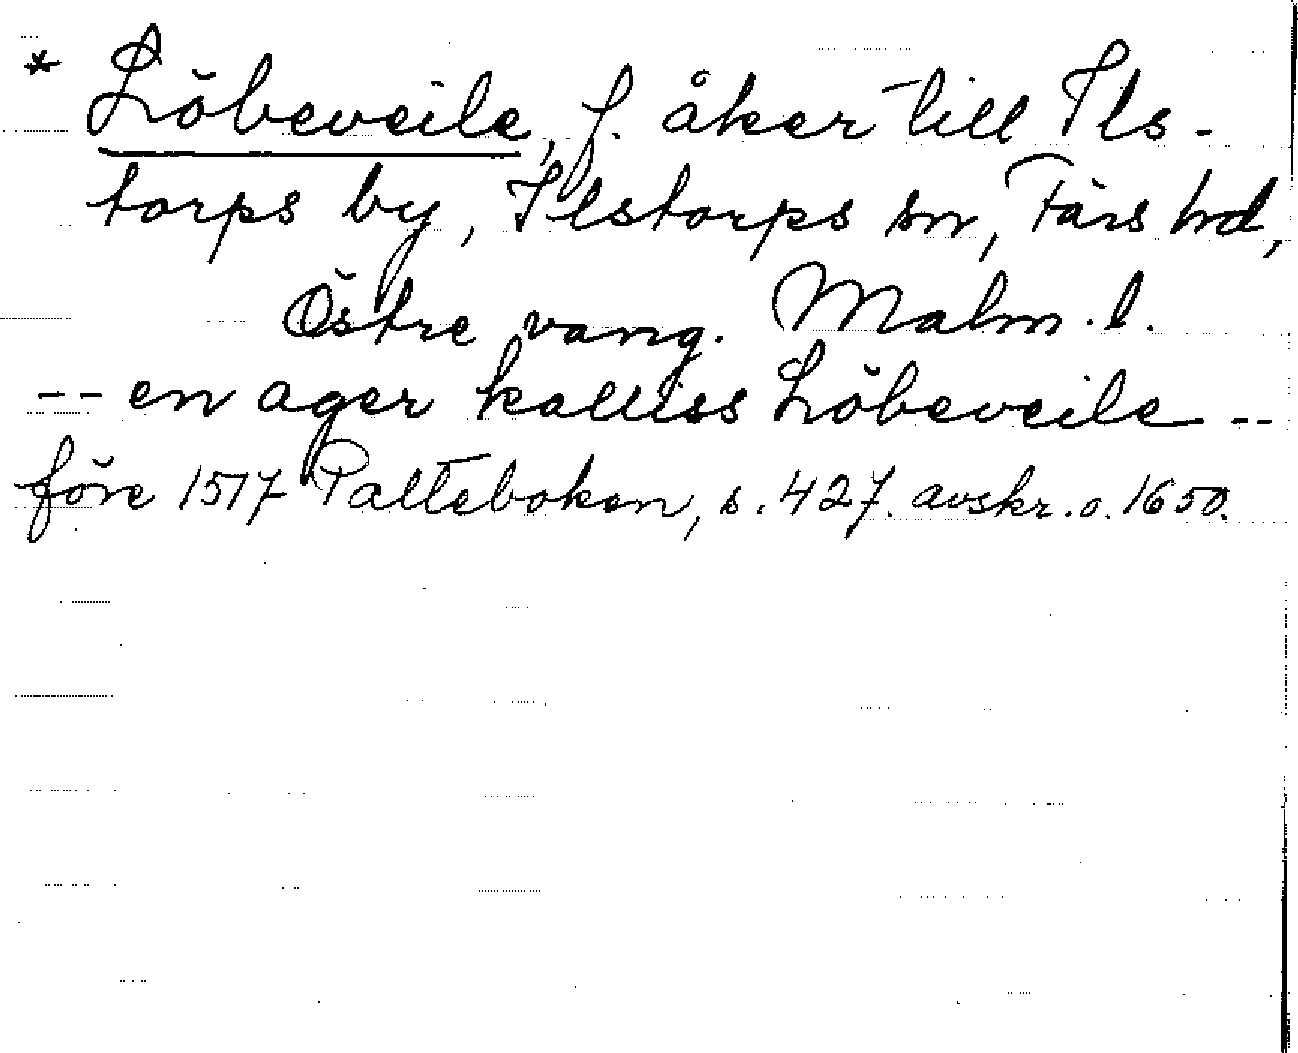 * Löbeveile, f. åker till Ils-
torps by, Ilstorps sn, Färs hd,
Östre vang. Malm. l.
-- en ager kalliss Löbeveile --
före 1517 Palteboken, s. 427. avskr. o. 1650.